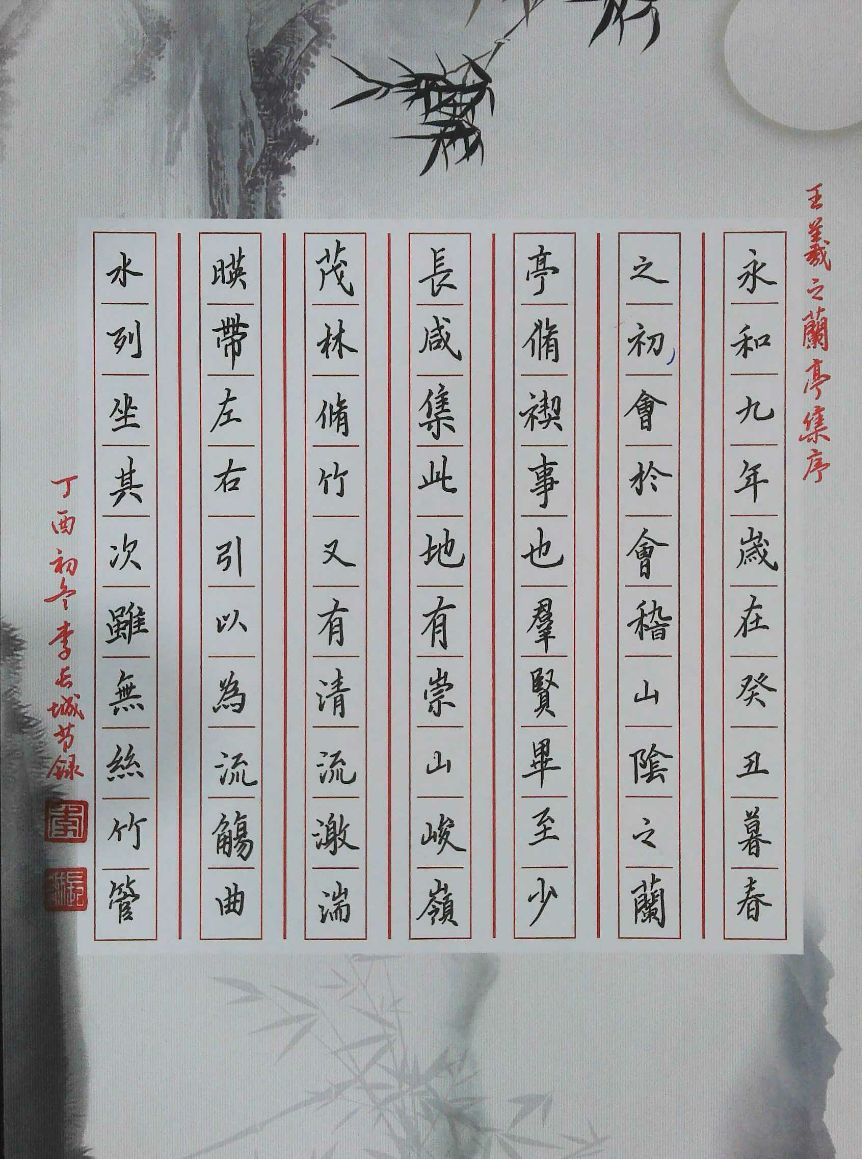 王羲之蘭亭集序
永和九年歲在癸丑暮春
之初會於會稽山陰之蘭
亭脩禊事也羣賢畢至少
長咸集此地有崇山峻嶺
茂林脩竹又有清流激湍
暎帶左右引以為流觴曲
水列坐其次雖無絲竹管
丁酉初冬李長城节録